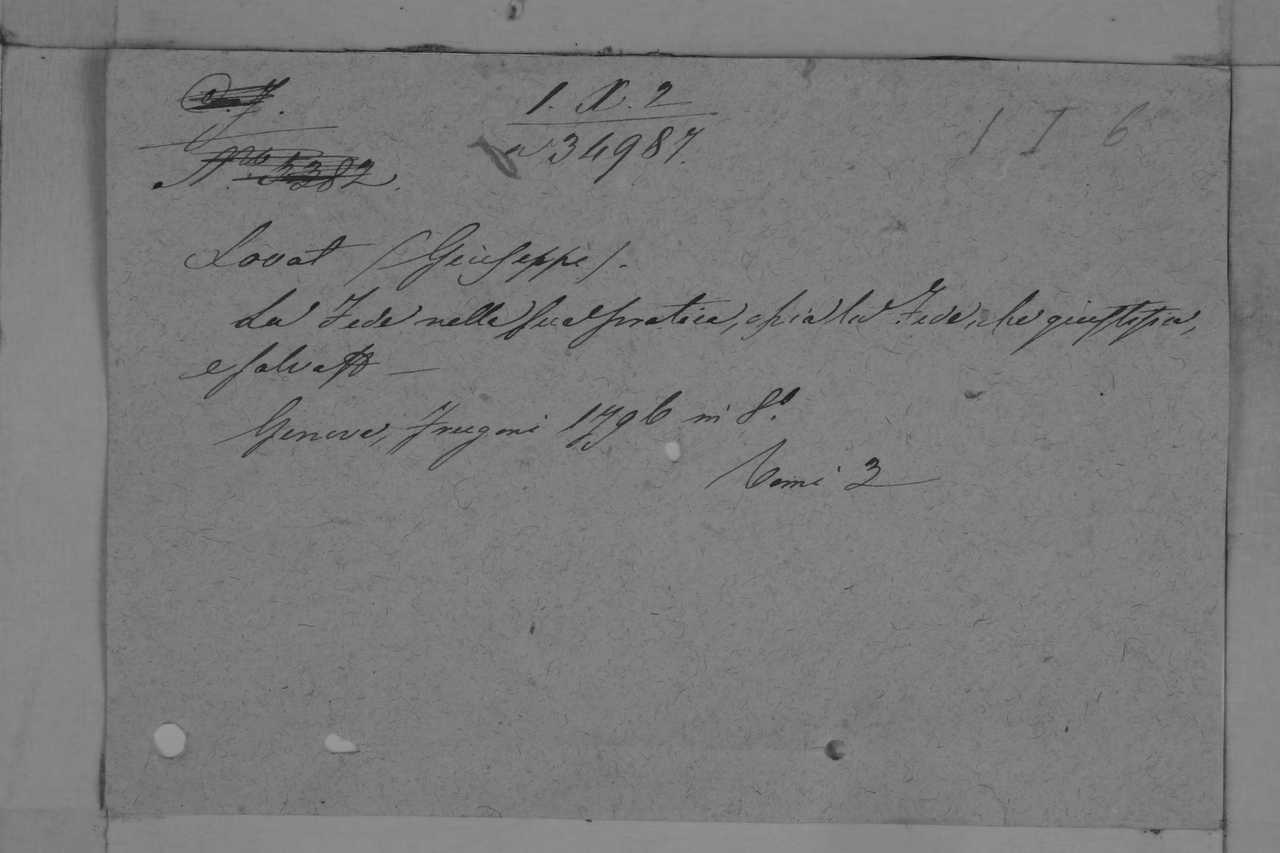 1. X. 2
a 34987.
1 I 6
N.º 5382.
Lovat (Giuseppe).
La Fede nella sua pratica, ossia la Fede, che giustifica,
e salva —
Genova, Frugoni 1796 in 8.º
Tomi 3